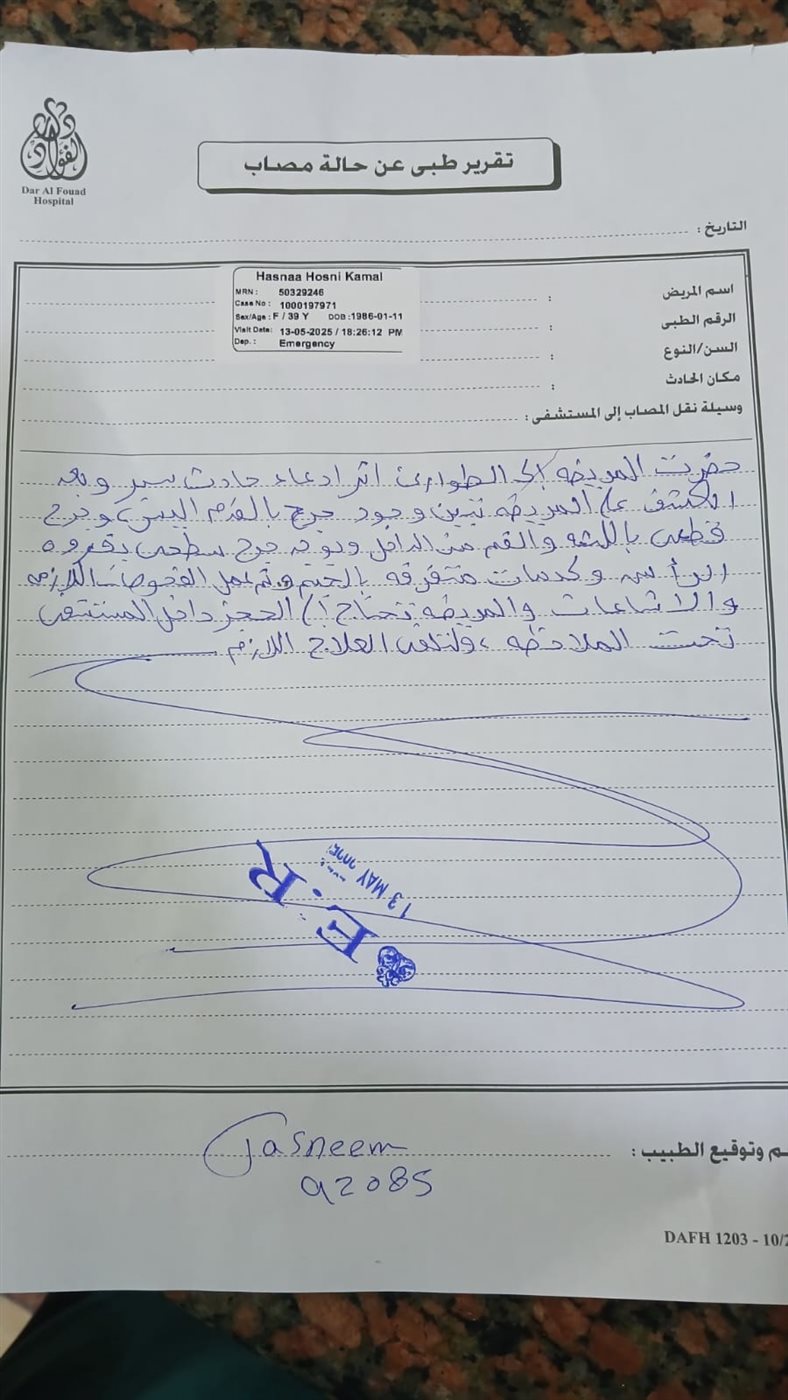 دار الفؤاد
Dar Al Fouad
Hospital
تقرير طبى عن حالة مصاب
التاريخ :
Hasnaa Hosni Kamal
MRN : 50329246
Case No : 1000197971
Sex/Age : F / 39 Y DOB :1986-01-11
Visit Date: 13-05-2025 / 18:26:12 PM
Dep. : Emergency
اسم المريض :
الرقم الطبى :
السن/النوع :
مكان الحادث :
وسيلة نقل المصاب إلى المستشفى :
حضرت المريضه إلى الطوارئ اثر ادعاء حادث سير وبعد
الكشف على المريضه تبين وجود جرح بالقدم اليسرى وجرح
قطعى باللثه والفم من الداخل ويوجد جرح سطحى بفروه
الرأس وكدمات متفرقه بالجسم وتم عمل الفحوصات اللازمه
والاشاعات والمريضه تحتاج إلى الحجز داخل المستشفى
تحت الملاحظه ولتلقى العلاج اللازم
E.R
13 MAY
م وتوقيع الطبيب :
Tasneem
92085
DAFH 1203 - 10/2